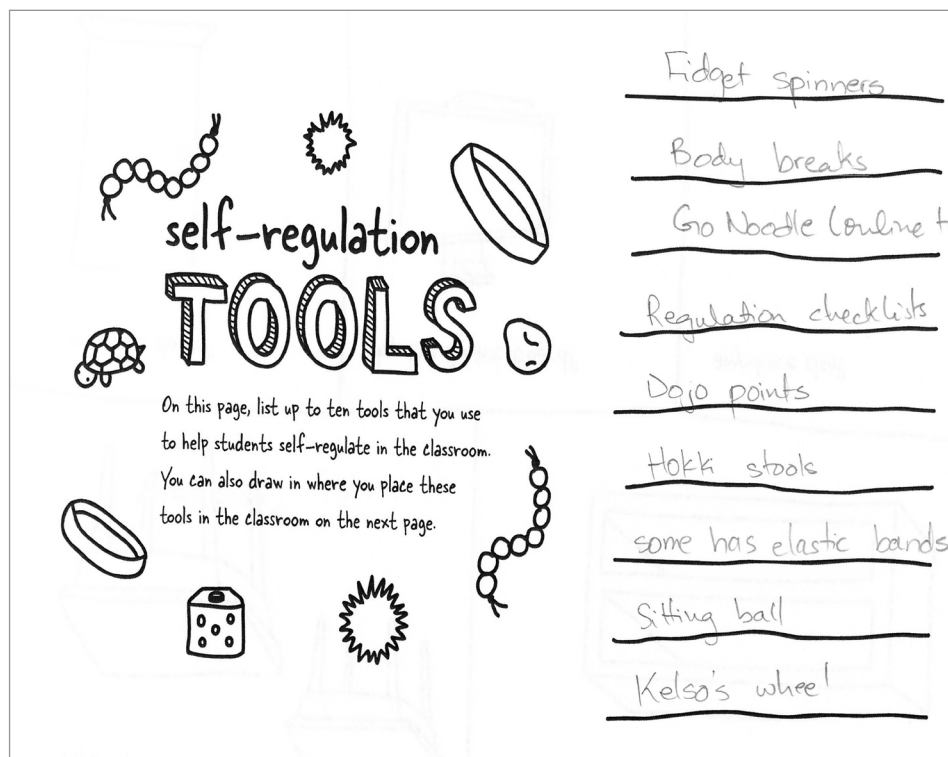 self-regulation
TOOLS
On this page, list up to ten tools that you use
to help students self-regulate in the classroom.
You can also draw in where you place these
tools in the classroom on the next page.
Fidget spinners
Body breaks
Go Noodle (online
Regulation checklists
Dojo points
Hokki stools
some has elastic bands
Sitting ball
Kelso's wheel